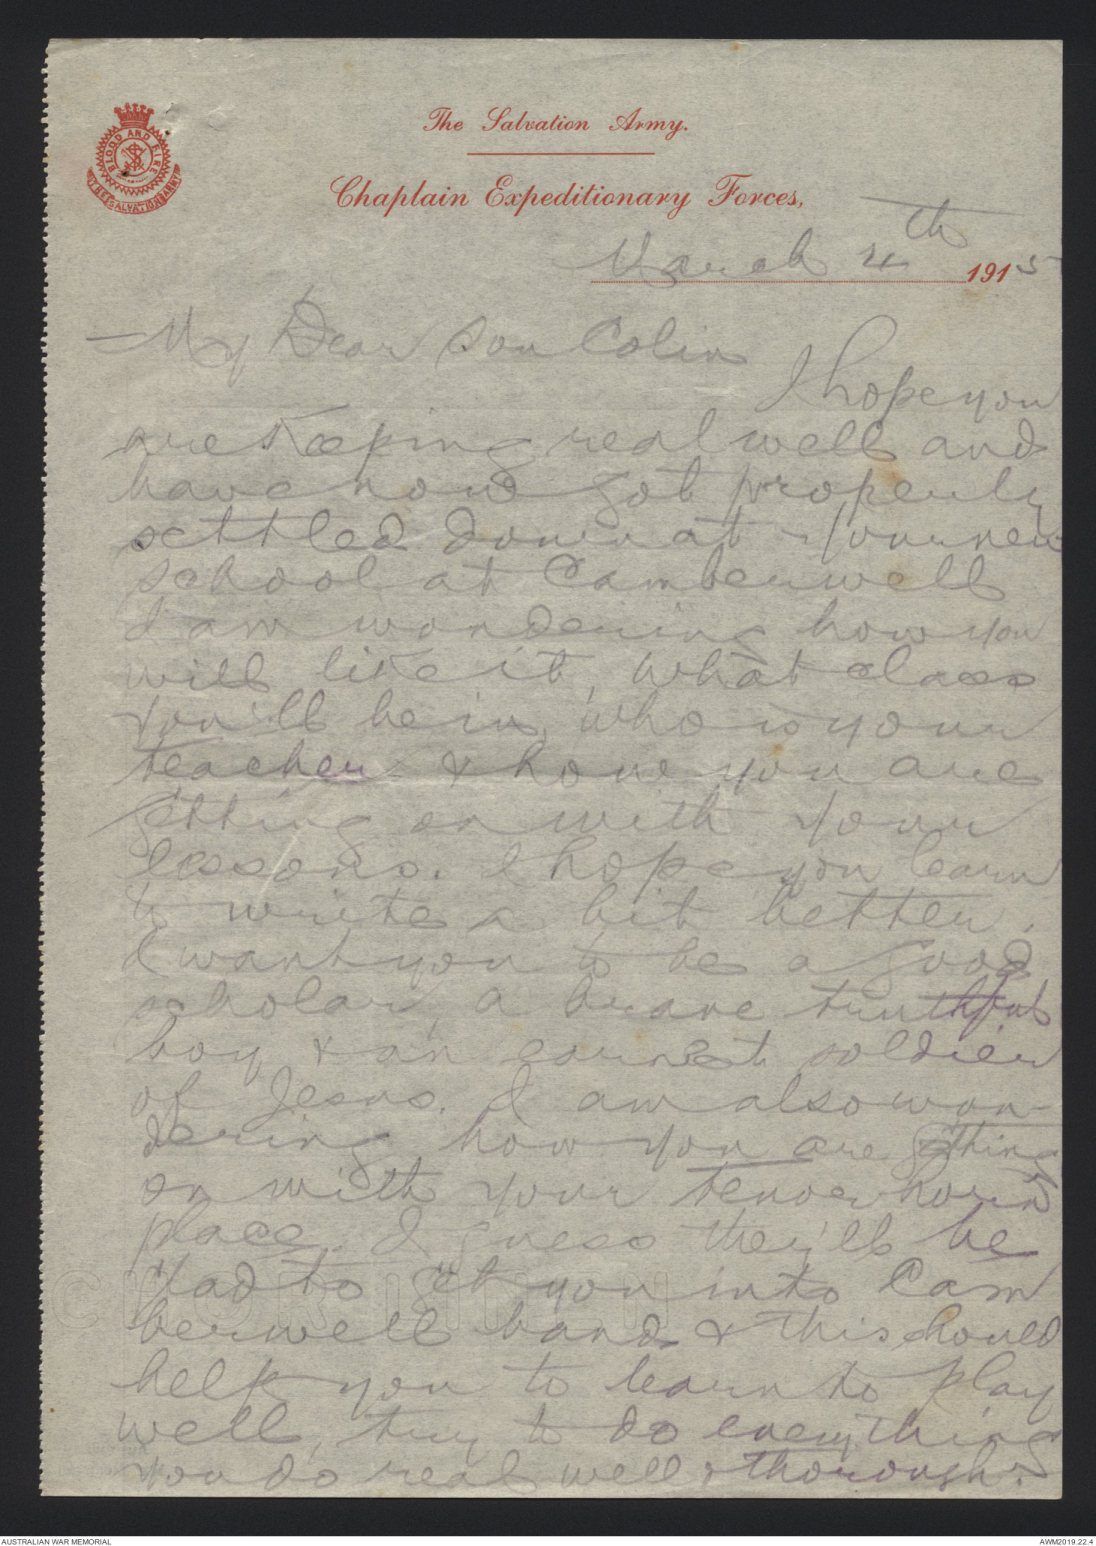 BLOOD AND FIRE
THE SALVATION ARMY
The Salvation Army.
Chaplain Expeditionary Forces,
March 4th 1915
My Dear Son Colin
I hope you
are keeping real well and
have now got properly
settled down at your new
school at Camberwell
I am wondering how you
will like it, what class
you'll be in, who is your
teacher & how you are
getting on with your
lessons. I hope you learn
to write a bit better.
I want you to be a good
scholar, a brave truthful
boy & an earnest soldier
of Jesus. I am also won-
dering how you are getting
on with your tenor horn
place. I guess they'll be
glad to get you into Cam
berwell band & this should
help you to learn to play
well, try to do everything
you do real well & thorough.
AUSTRALIAN WAR MEMORIAL
AWM2019.22.4